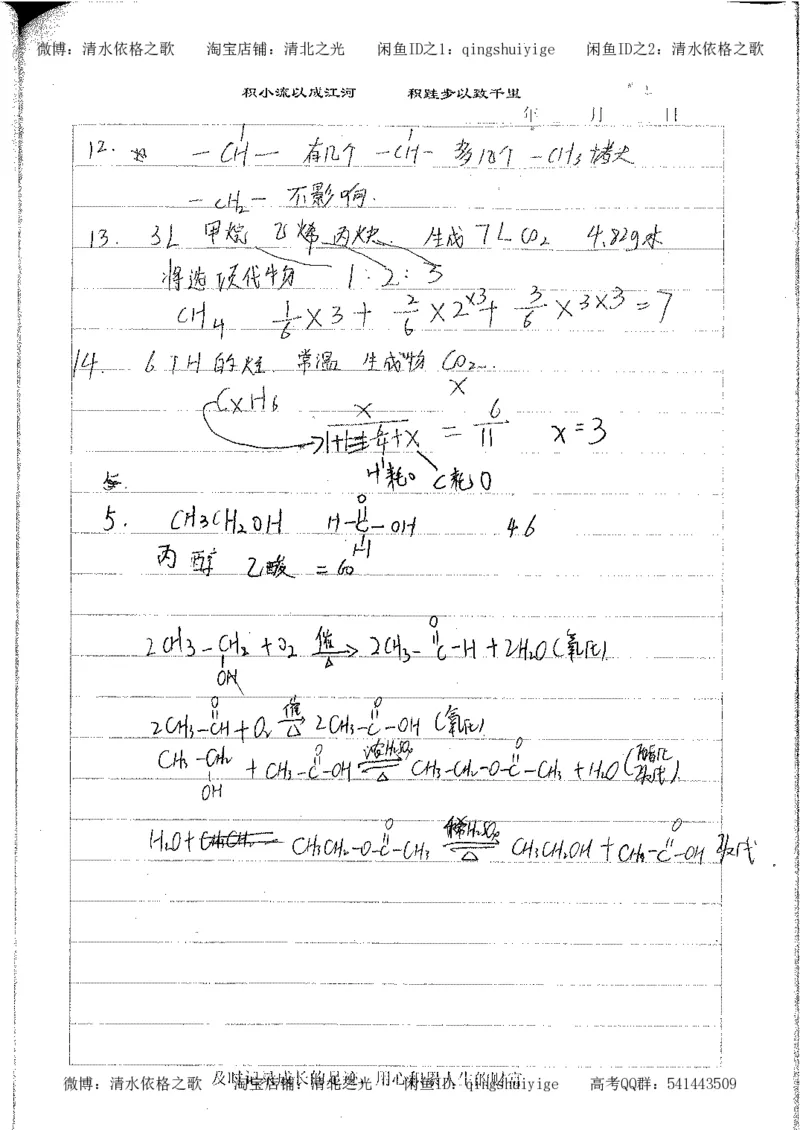 微博：清水依格之歌 淘宝店铺：清北之光 闲鱼ID之1：qingshuiyige 闲鱼ID之2：清水依格之歌
积小流以成江河 积跬步以致千里
年 月 日
12. －CH－ 有几个 －CH－ 多几个 －CH3
－CH2－ 不影响.
13. 3L 甲烷 乙烯 丙炔. 生成 7L CO2 4.82g水
将选项代 1:2:3
CH4 1/6×3+ 2/6×2×3+ 3/6×3×3=7
14. 6个H的烃. 常温 生成物 CO2...
x
CxH6 x/ +x = 6/11 x=3
H耗O C耗O
5. CH3CH2OH H-C-OH 46
O H
丙醇 乙酸 =60
2CH3-CH2+O2 催 △ → 2CH3-C-H+2H2O(氧化)
OH O
2CH3-CH+O2 催 △ → 2CH3-C-OH (氧化)
O O
CH3-CH2 + CH3-C-OH 浓H2SO4 △ CH3-CH2-O-C-CH3 +H2O(酯化 取代)
OH O O
H2O+ CH3CH2-O-C-CH3 稀H2SO4 △ CH3CH2OH + CH3-C-OH 取代
O O
及时记录成长的足迹，用心积累人生的财富
微博：清水依格之歌 淘宝店铺：清北之光 闲鱼ID之1：qingshuiyige 高考QQ群：541443509